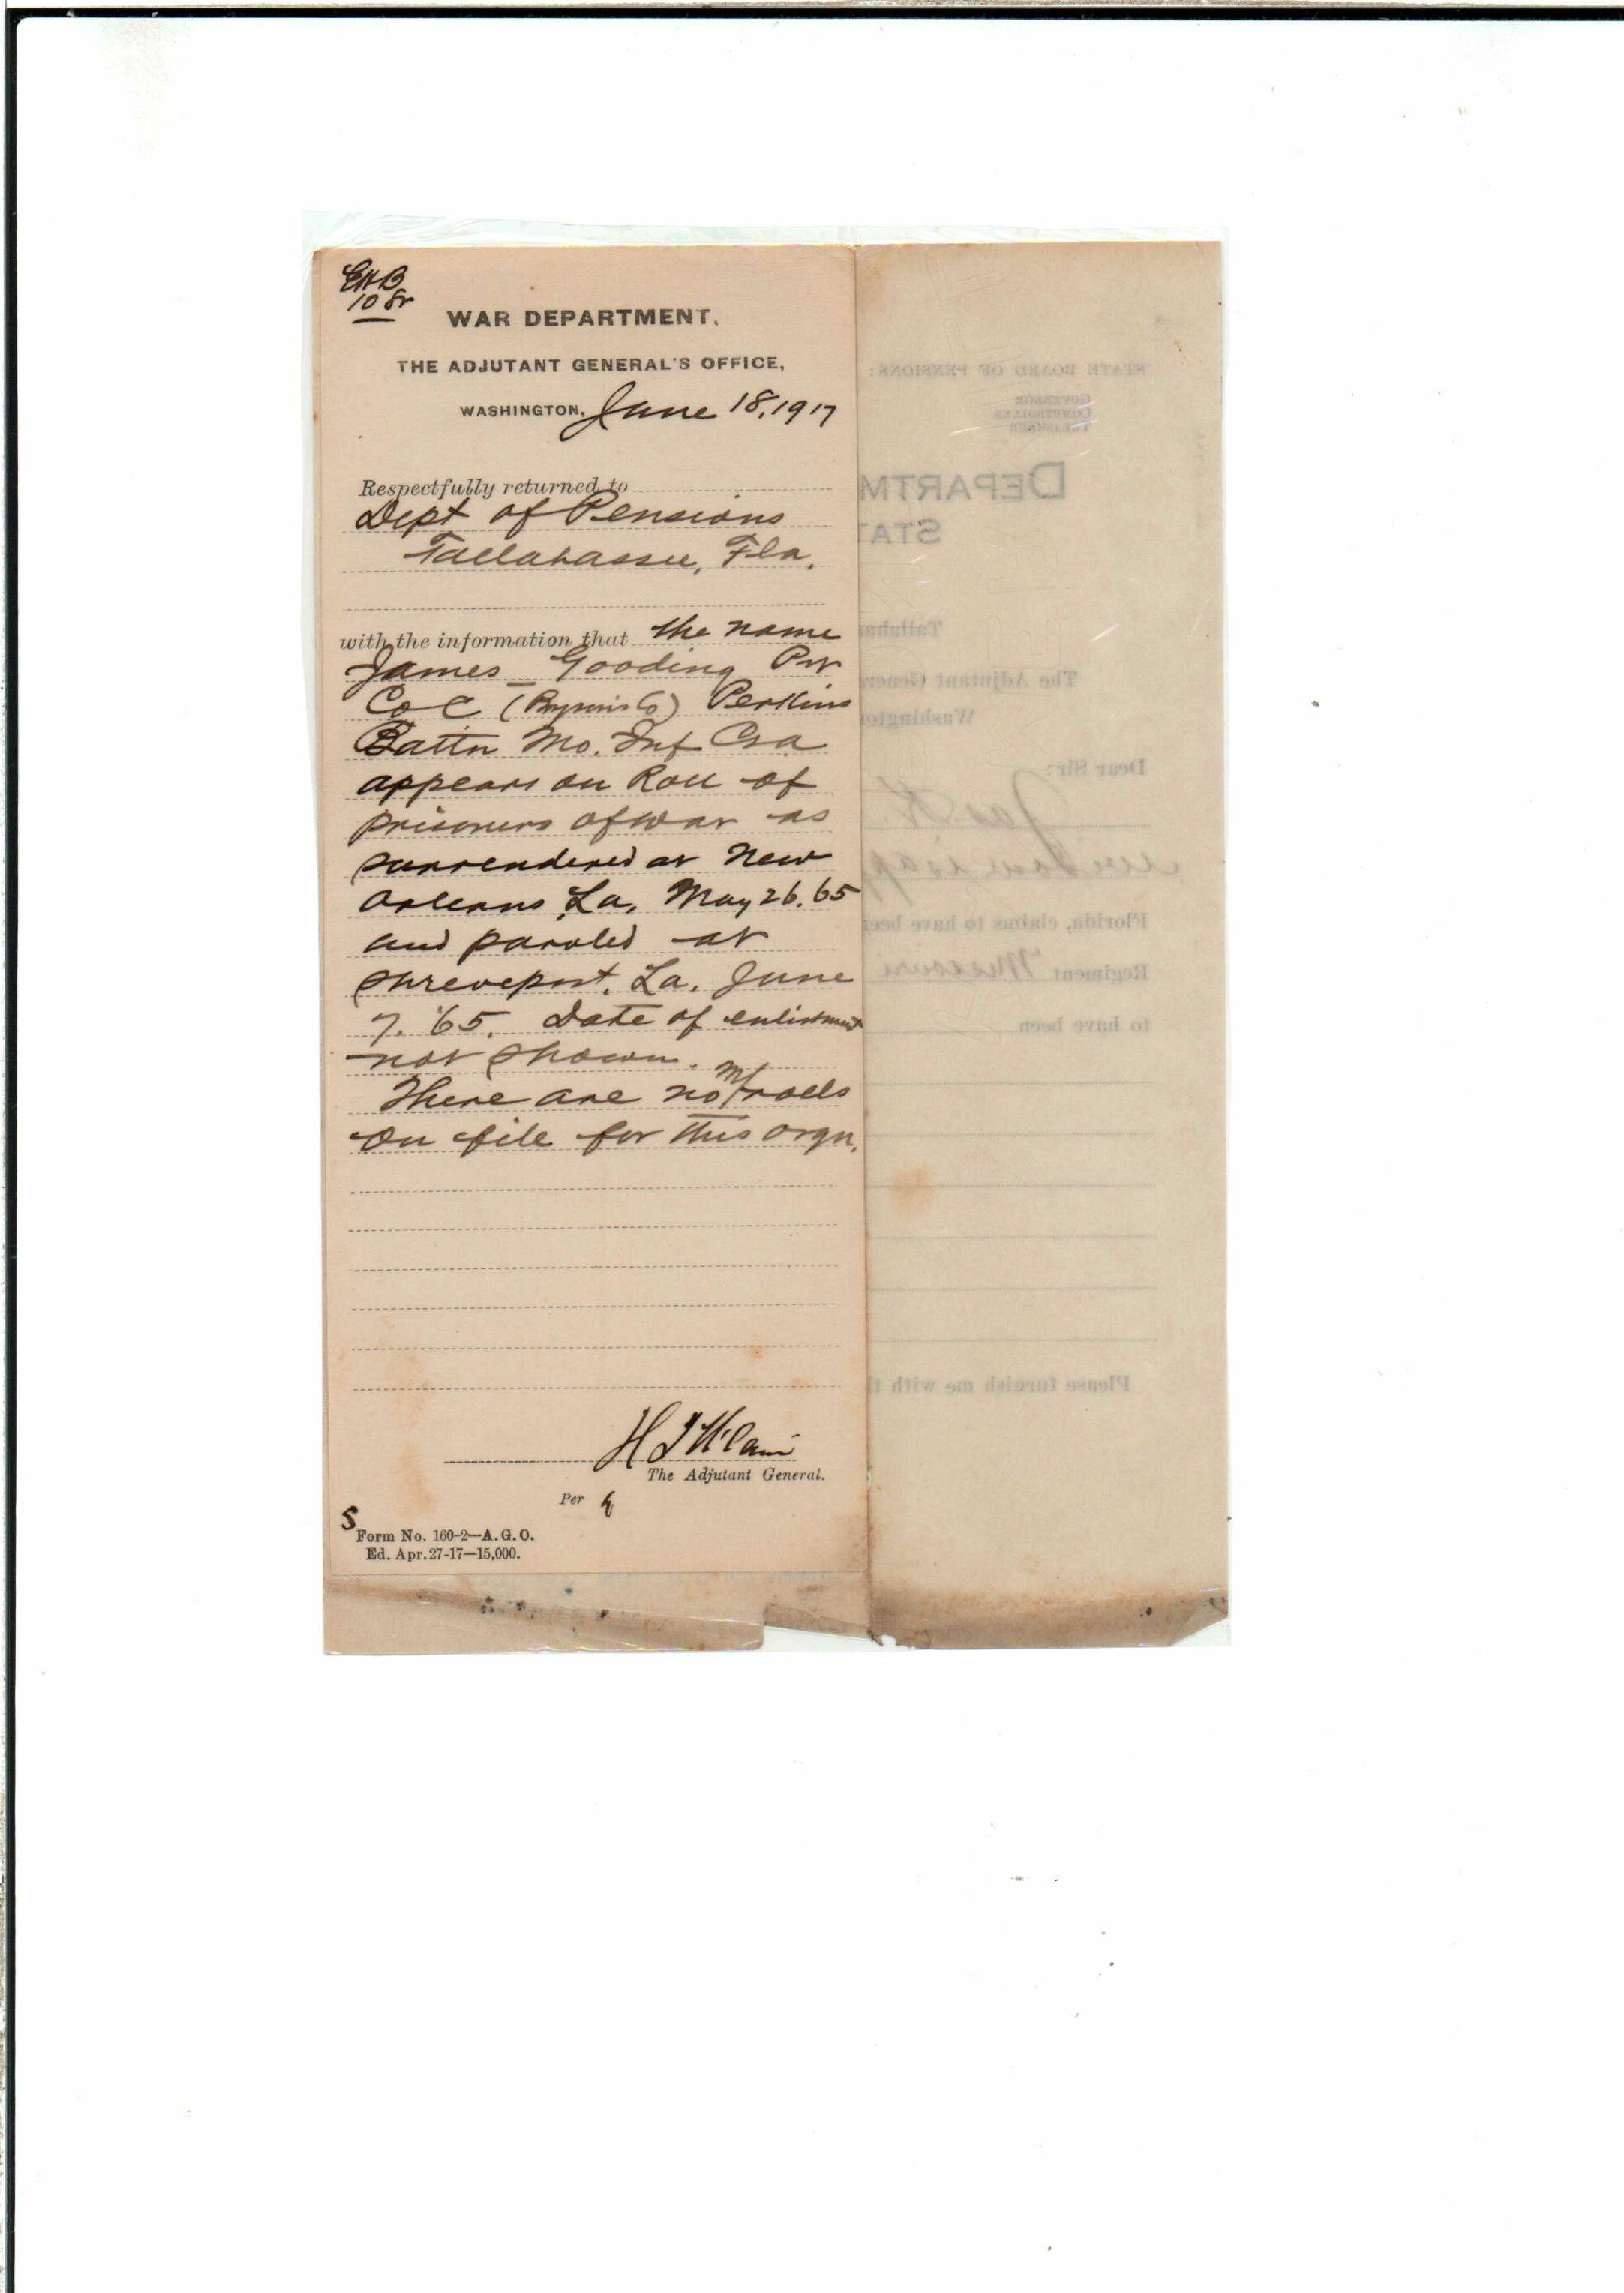 EHB
10 Sr
WAR DEPARTMENT,
THE ADJUTANT GENERAL'S OFFICE,
WASHINGTON, June 18, 1917
Respectfully returned to
Dept of Pensions
Tallahassee, Fla.
with the information that the name
James Gooding Pvt
Co C Perkins
Battn Mo. Inf Csa
appears on Roll of
prisoners of war as
surrendered at New
Orleans La, May 26. 65
and paroled at
Shreveport, La, June
7. '65. Date of enlistment
not shown.
There are no M/rolls
on file for this orgn.
The Adjutant General.
Per
S
Form No. 160-2—A.G.O.
Ed. Apr. 27-17—15,000.
STATE BOARD OF PENSIONS:
GOVERNOR
COMPTROLLER
TREASURER
DEPARTM
STAT
Tallaha
The Adjutant Gener
Washington
Dear Sir:
Jas
widow
Florida, claims to have been
Regiment Missouri
to have been
Please furnish me with t